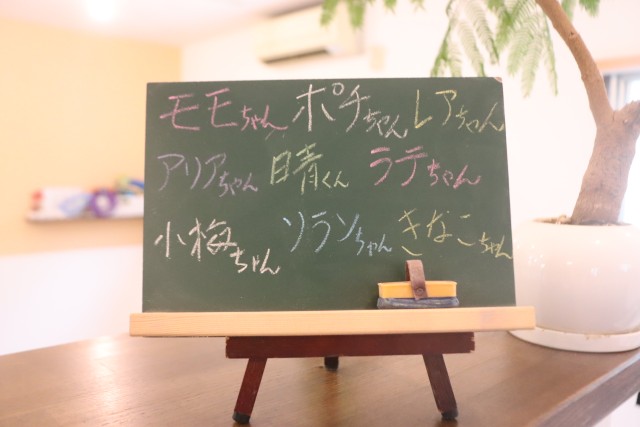 モモちゃん ポチちゃん レアちゃん
アリアちゃん 晴くん ラテちゃん
小梅ちゃん ソランちゃん きなこちゃん